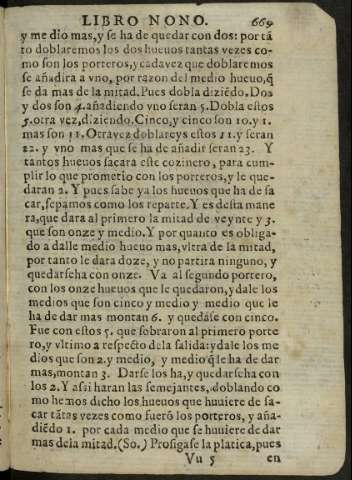 LIBRO NONO. 669
y me dio mas, y se ha de quedar con dos: por tã
to doblaremos los dos hueuos tantas vezes co-
mo son los porteros, y cada vez que doblaremos
se añadira a vno, por razon del medio hueuo, q̃
se da mas de la mitad. Pues dobla diziẽdo. Dos
y dos son 4. añadiendo vno seran 5. Dobla estos
5. otra vez, diziendo. Cinco, y cinco son 10. y 1.
mas son 11. Otra vez doblareys estos 11. y seran
22. y vno mas que se ha de añadir seran 23. Y
tantos hueuos sacara este cozinero, para cum-
plir lo que prometio con los porteros, y le que-
daran 2. Y pues sabe ya los hueuos que ha de sa
car, sepamos como los reparte. Y es desta mane
ra, que dara al primero la mitad de veynte y 3.
que son onze y medio. Y por quanto es obliga-
do a dalle medio hueuo mas, vltra de la mitad,
por tanto le dara doze, y no partira ninguno, y
quedarseha con onze. Va al segundo portero,
con los onze hueuos que le quedaron, y dale los
medios que son cinco y medio y medio que le
ha de dar mas montan 6. y quedase con cinco.
Fue con estos 5. que sobraron al primero porte
ro, y vltimo a respecto dela salida: y dale los me
dios que son 2. y medio, y medio q̃ le ha de dar
mas, montan 3. Darselos ha, y quedarseha con
los 2. Y assi haran las semejantes, doblando co
mo hemos dicho los hueuos que huuiere de sa-
car tãtas vezes como fuerõ los porteros, y aña-
diẽdo 1. por cada medio que se huuiere de dar
mas dela mitad. (So.) Prosigase la platica, pues
Vu 5 en